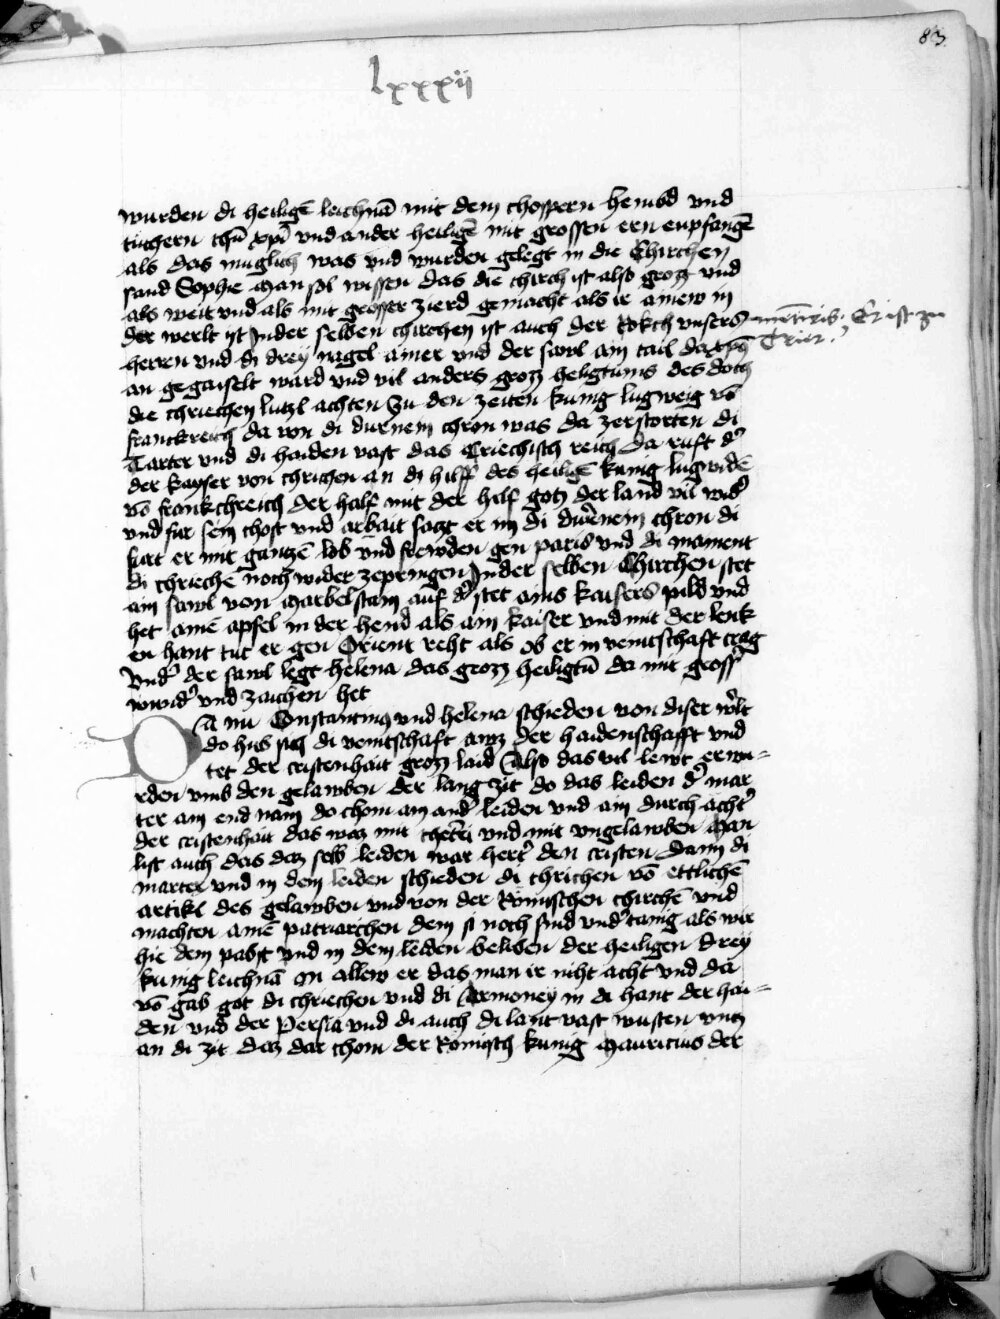 83
lxxxij
wurden di heiligē leichnā mit dem choppern hembd vnd
tüchern ihū xpī vnd ander heiligē mit grossen ern enpfangē
als das muglich was vnd wurden gelegt in die Chirchen
sand Sophie Man sol wissen das die chirch ist also grozz vnd
als weit vnd als mit grosser zierd gemacht als ir ainew in
der werlt ist In der selben chirchen ist auch der Rokch vnsers
herren vnd di drey nagel ainer vnd der sawl ain tail da xpūs
an gegaiselt ward vnd vil anders grozz heiligtums des doch
die chriechen lutzl achten Zu den zeiten kunig lugweig vō
franckreich da von di durnein chron was da zerstorten di
Tarter vnd di haiden vast das Criechisch reich Da ruft d'
der kayser von chrichen an di hilff des heiligē kunig lugwidē
vō frankchreich der half mit der hilf gotz der land vil wid'
vnd fur sein chost vnd arbait satzt er im di durnenein chron di
furt er mit gantzē lob vnd frewden gen paris vnd di mainent
di chrieche noch wider zepringen In der selben Chirchen stet
ain sawl von Marbelstain auf d' stet ains kaisers pild vnd
het ainē apfel in der hend als ain kaiser vnd mit der lenk
en hant tut er gen Orient reht als ob er in veintschaft trag
Vnd' der sawl legt helena das grozz heiligtū da mit gross'
wund' vnd zaichen het
Da nu Constantinus vnd helena schieden von diser w'lt
do hub sich di veintschaft awz der haidenschafft vnd
tet der cristenhait grozz laid Also das vil lewt erwu=
rden vmb den gelawben der lang zit do das leiden d' mar
ter ain end nam do chom ain and' leiden vnd ain durch acht'
der cristenhait das waz mit chetzrei vnd mit vngelawben Man
list auch das daz selb leiden war hert' den cristen dann di
marter vnd in dem leiden schieden di chrichen vō ettlichē
artikl des gelawben vnd von der Romischen chirchē vnd
machten ainē patriarchen dem si noch sind vnd'tanig als wir
hie dem pabst vnd in dem leiden beliben der heiligen drey
kunig leichnā an allew er das man ir niht acht vnd da
vō gab got di chriechen vnd di Armoney in di hant der hai=
den vnd der Persia vnd di auch di lant vast wusten vntz
an di zit daz dar chom der Romisch kunig Mauricius der
Er ist zu
Trier